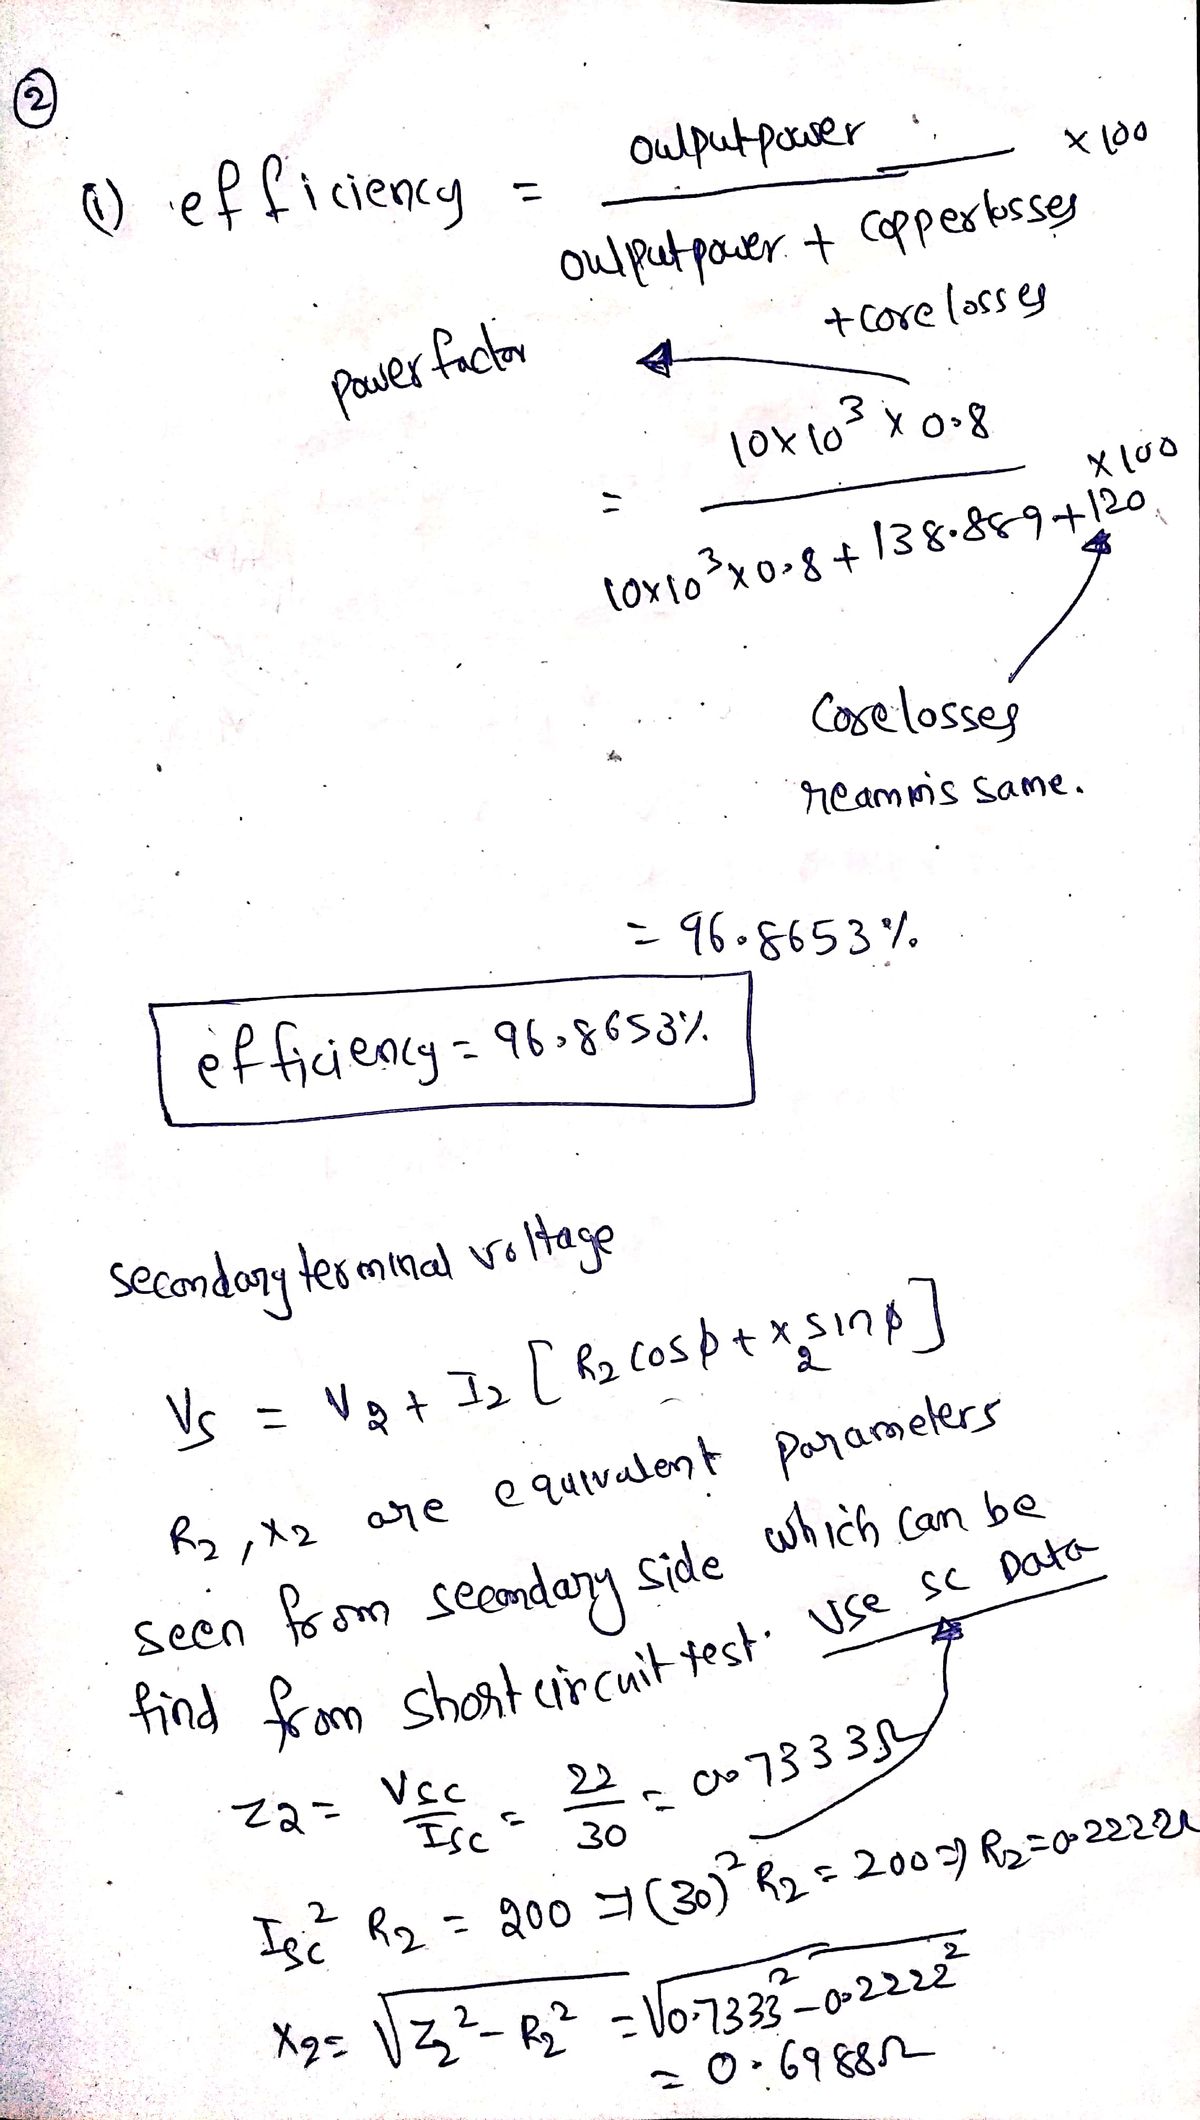 2
(i) efficiency = outputpower / outputpower + copperlosses + corelosses × 100
powerfactor
= 10×10³ × 0.8 / 10×10³×0.8 + 138.889+120 ×100
Corelosses
reamins same.
= 96.8653%
efficiency = 96.8653%
secondary terminal voltage
Vs = V2 + I2 [R2 cosφ + x2 sinφ]
R2, x2 are equivalent parameters
seen from secondary side which can be
find from short circuit test. Use SC Data
Z2 = Vsc/Isc = 22/30 = 0.7333Ω
Isc² R2 = 200 ⇒ (30)² R2 = 200 ⇒ R2 = 0.2222Ω
X2 = √Z2² - R2² = √0.7333² - 0.2222²
= 0.6988Ω